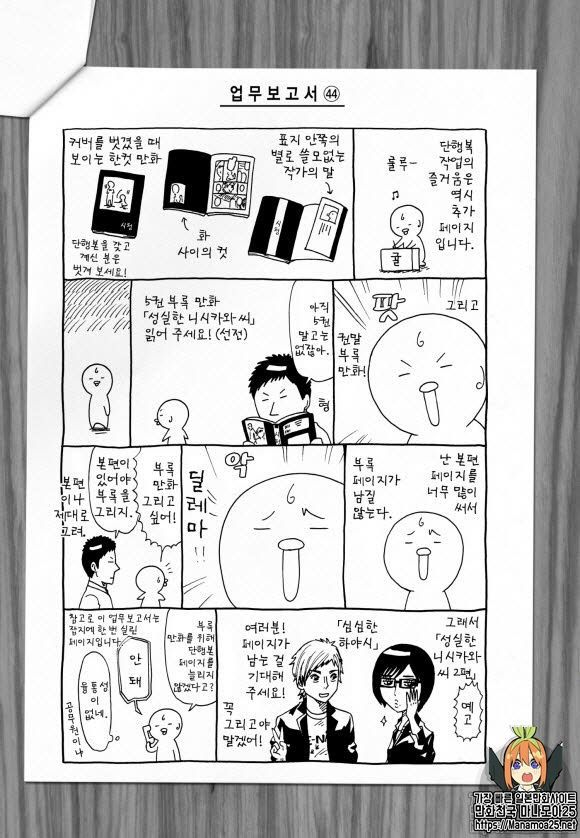 업무보고서 ㊹
단행복
작업의
즐거움은
역시
추가
페이지
입니다.
룰루ー
귤
표지 안쪽의
별로 쓸모없는
작가의 말
사정
커버를 벗겼을 때
보이는 한컷 만화
사정
화
사이의 컷
단행본을 갖고
계신 분은
벗겨 보세요!
그리고
팟
권말
부록
만화!
아직
5권
말고는
없잖아.
형
5권 부록 만화
「성실한 니시카와 씨」
읽어 주세요! (선전)
난 본편
페이지를
너무 많이
써서
부록
페이지가
남질
않는다.
악
딜레마!!
부록
만화
그리고
싶어!
본편이
있어야
부록을
그리지.
본편
이나
제대로
그려.
그래서
「성실한
니시카와
씨 2편」
예고
「심심한
하야시」
여러분!
페이지가
남는 걸
기대해
주세요!
꼭
그리고야
말겠어!
부록
만화를 위해
단행본
페이지를
늘리지
않겠다고?
안
돼
참고로 이 업무보고서는
잡지에 한 번 실린
페이지입니다
융통성
이
없네.
공무원이냐
가장 빠른 일본만화사이트
만화천국 마나모아25
https://Manamoa25.net